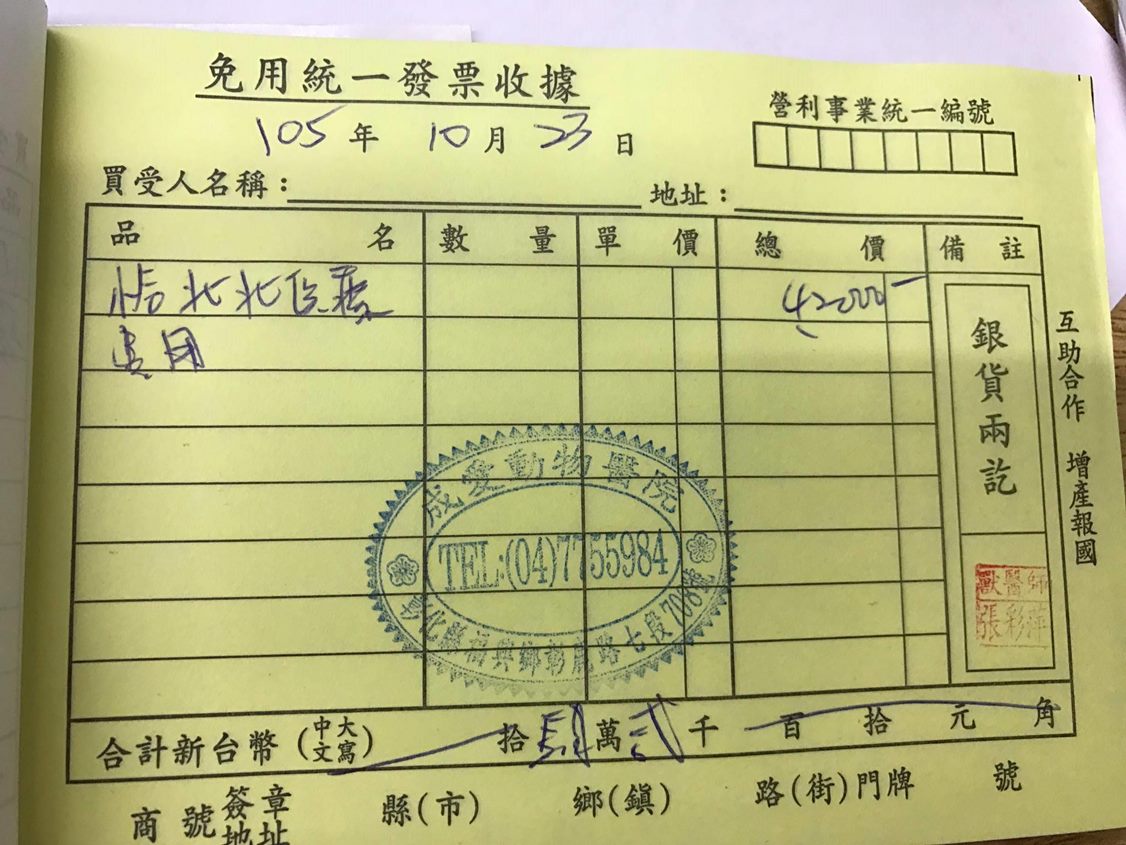 免用統一發票收據
營利事業統一編號
105年 10月 23日
買受人名稱： 地址：
品名 數量 單價 總價 備註
北北醫療 42000
費用
銀貨兩訖
互助合作 增產報國
成愛動物醫院
TEL:(04)7755984
彰化縣福興鄉彰鹿路七段708號
獸醫師
張彩萍
合計新台幣(中文大寫) 拾肆萬貳千百拾元角
商號簽章地址 縣(市) 鄉(鎮) 路(街)門牌 號